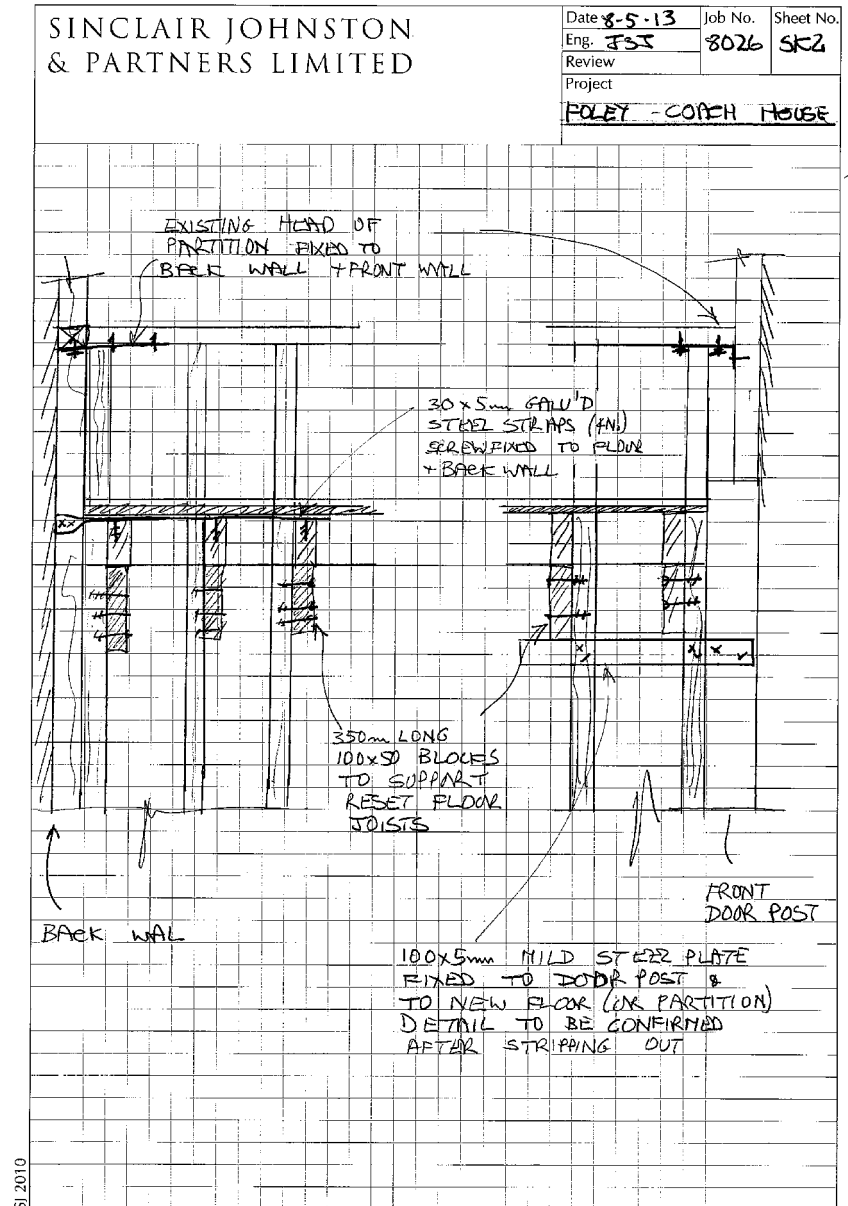 SINCLAIR JOHNSTON
& PARTNERS LIMITED
Date 8-5-13
Job No. 8026
Sheet No. SK2
Eng. JSJ
Review
Project
FOLEY - COACH HOUSE
EXISTING HEAD OF
PARTITION FIXED TO
BACK WALL + FRONT WALL
30 x 5mm GALV'D
STEEL STRAPS (4N.)
SCREWFIXED TO FLOOR
+ BACK WALL
350m LONG
100x50 BLOCKS
TO SUPPORT
RESET FLOOR
JOISTS
FRONT
DOOR POST
BACK WAL
100x5mm MILD STEEL PLATE
FIXED TO DOOR POST &
TO NEW FLOOR (OR PARTITION)
DETAIL TO BE CONFIRMED
AFTER STRIPPING OUT
SJ 2010